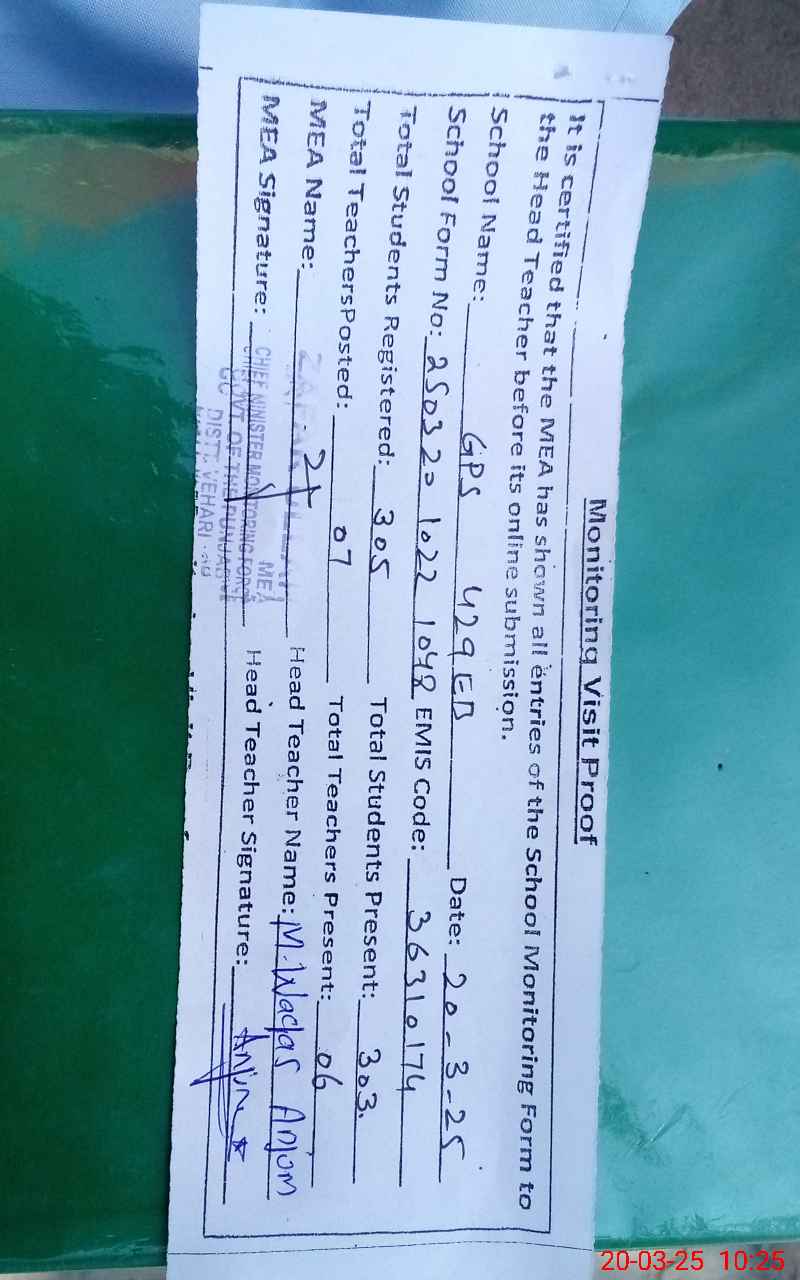 Monitoring Visit Proof
It is certified that the MEA has shown all entries of the School Monitoring Form to
the Head Teacher before its online submission.
School Name: GPS 429 EB Date: 20-3-25
School Form No: 250320 1022 1048 EMIS Code: 36310174
Total Students Registered: 305 Total Students Present: 303.
Total TeachersPosted: 07 Total Teachers Present: 06
MEA Name: Head Teacher Name: M. Waqas Anjom
MEA Signature: Head Teacher Signature:
MEA
CHIEF MINISTER MONITORING FORCE
GOVT OF THE PUNJAB
DISTT. VEHARI
20-03-25 10:25